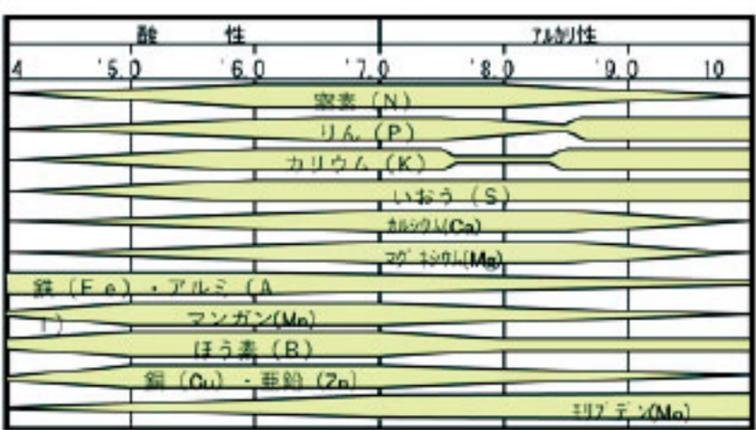 酸 性 アルカリ性
4 '5.0 '6.0 '7.0 '8.0 '9.0 10
窒素 (N)
りん (P)
カリウム (K)
いおう (S)
カルシウム(Ca)
マグネシウム(Mg)
鉄 (Fe)・アルミ (A
l)
マンガン(Mn)
ほう素 (B)
銅 (Cu)・亜鉛 (Zn)
モリブデン(Mo)